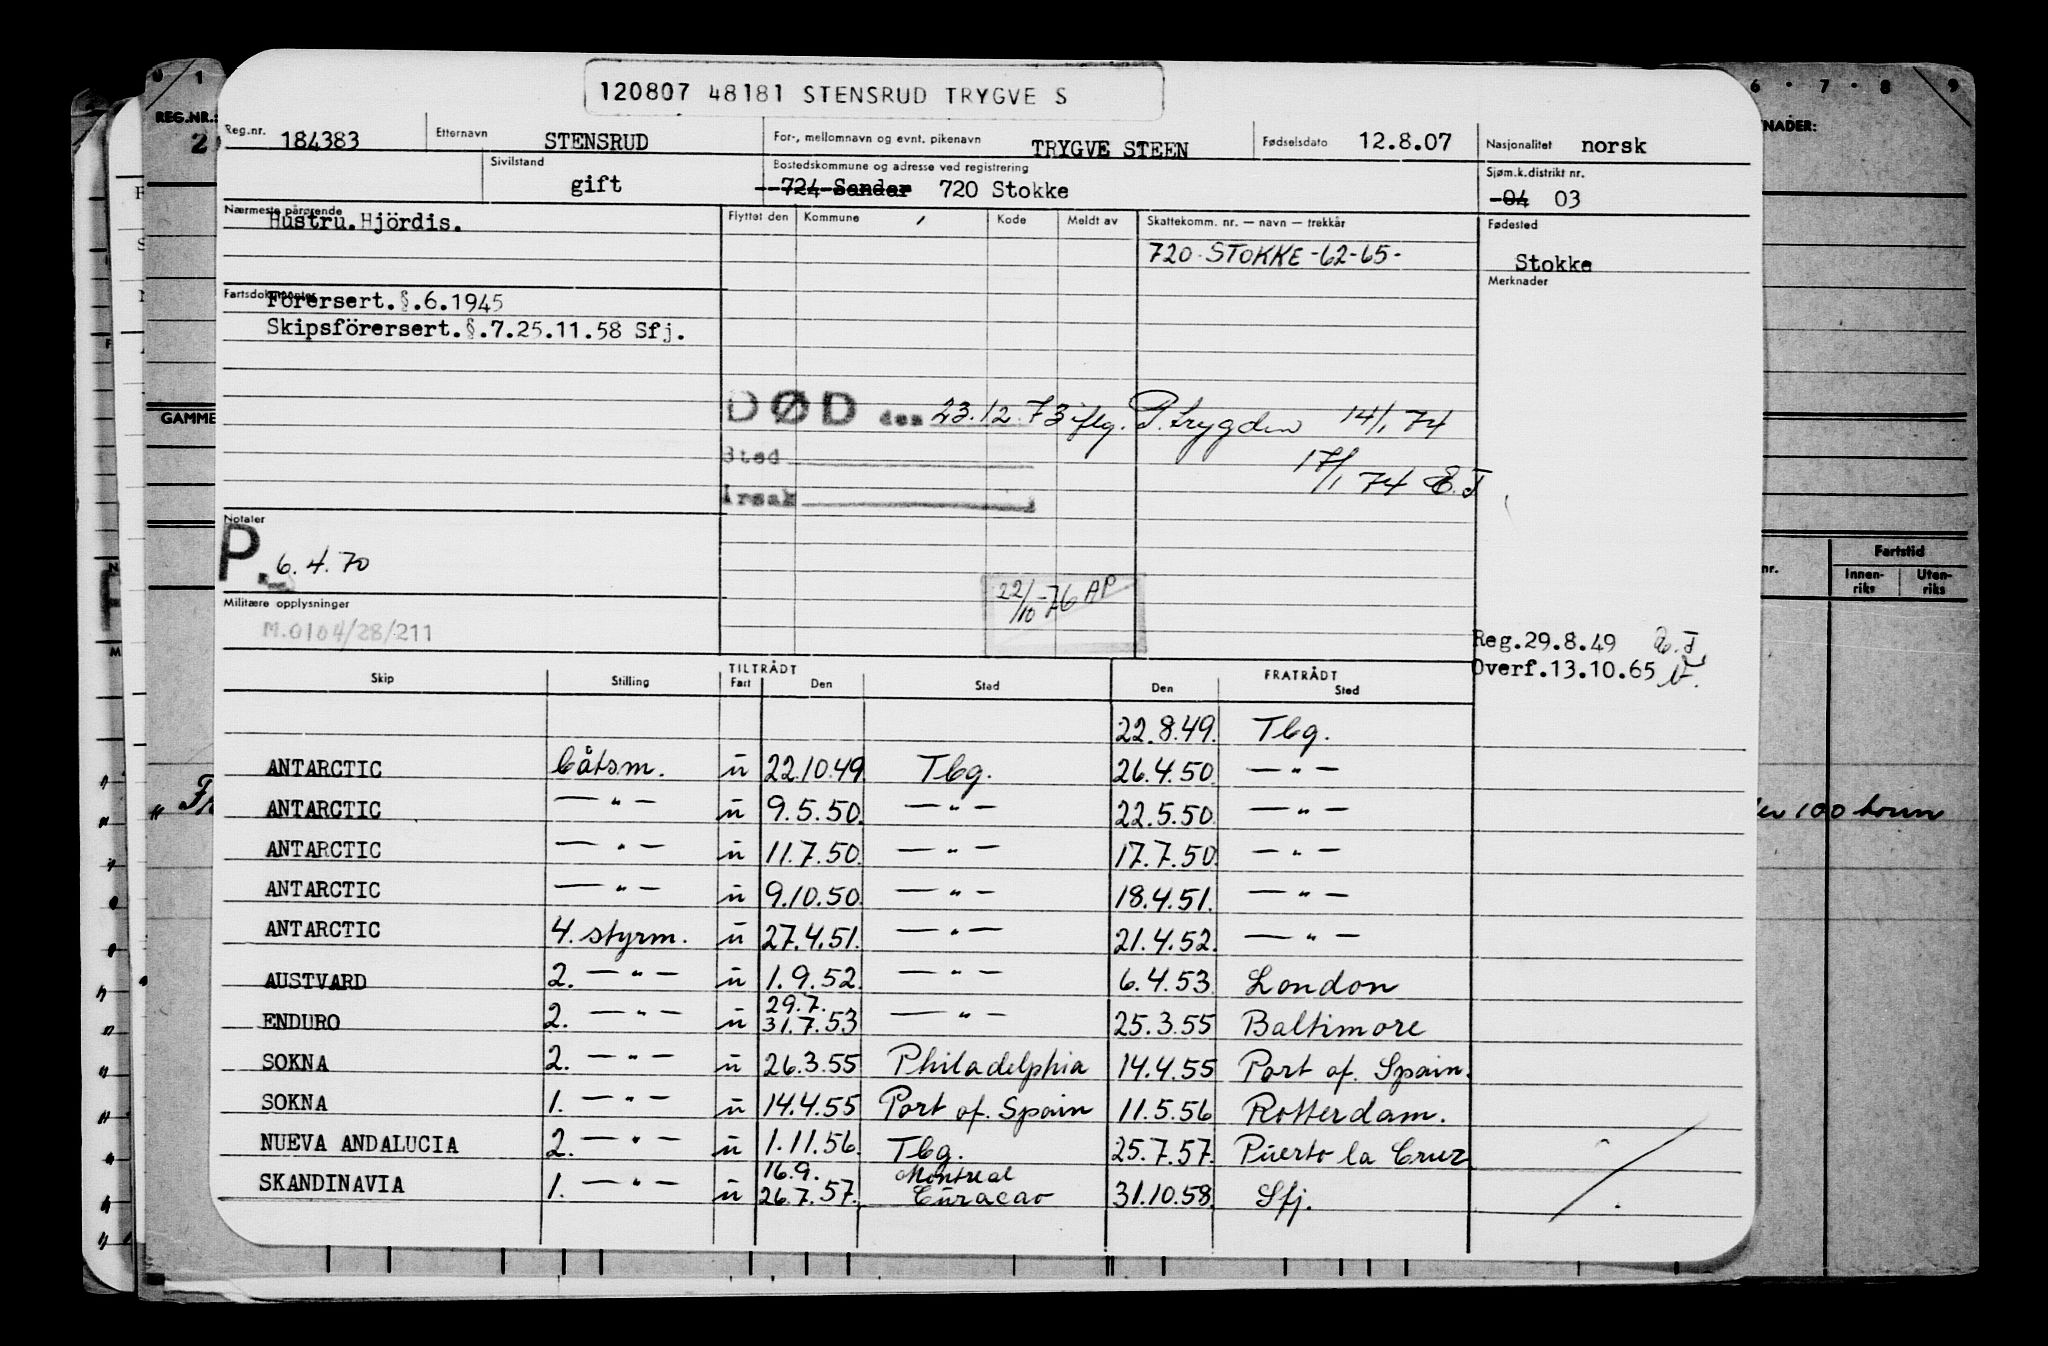 120807 48181 STENSRUD TRYGVE S
Reg.nr. 184383 Etternavn STENSRUD For-, mellomnavn og evnt. pikenavn TRYGVE STEEN Fødselsdato 12.8.07 Nasjonalitet norsk
Sivilstand gift Bostedskommune og adresse ved registrering 724 Sandar 720 Stokke Sjøm.k.distrikt nr. 04 03
Nærmeste pårørende Hustru.Hjördis. Flyttet den Kommune Kode Meldt av Skattekomm. nr. — navn — trekkår Fødested
720 STOKKE -62-65- Stokke
Merknader
Fartsdokumenter Förersert.§.6.1945
Skipsförersert.§.7.25.11.58 Sfj.
DØD den 23.12.73 iflg. P.trygden 14/1 74
Sted 17/1 74 E.J
Årsak
Notater
P. 6.4.70
22/10-76 AP
Militære opplysninger
M.0104/28/211
Reg.29.8.49
Overf.13.10.65
Skip Stilling TILTRÅDT Fart Den Sted FRATRÅDT Den Sted
22.8.49. Tbg.
ANTARCTIC båtsm. u 22.10.49 Tbg. 26.4.50. — " —
ANTARCTIC — " — u 9.5.50. — " — 22.5.50. — " —
ANTARCTIC — " — u 11.7.50. — " — 17.7.50. — " —
ANTARCTIC — " — u 9.10.50. — " — 18.4.51. — " —
ANTARCTIC 4. styrm. u 27.4.51. — " — 21.4.52. — " —
AUSTVARD 2. — " — u 1.9.52. — " — 6.4.53 London
ENDURO 2. — " — u 29.7. 31.7.53 — " — 25.3.55 Baltimore
SOKNA 2. — " — u 26.3.55 Philadelphia 14.4.55 Port of. Spain.
SOKNA 1. — " — u 14.4.55 Port of. Spain 11.5.56 Rotterdam.
NUEVA ANDALUCIA 2. — " — u 1.11.56. Tbg. 25.7.57. Puerto la Cruz
SKANDINAVIA 1. — " — u 16.9. 26.7.57. Montreal Curacao 31.10.58. Sfj.
REG.NR.:
GAMME
6 · 7 · 8 9
NADER:
nr. Fartstid
Innen-riks Uten-riks
100 tonn